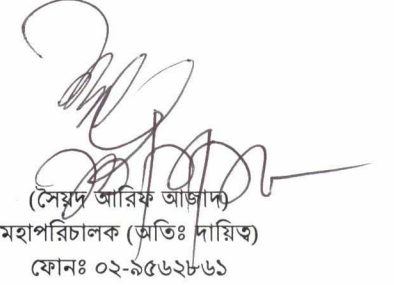 (সৈয়দ আরিফ আজাদ)
মহাপরিচালক (অতিঃ দায়িত্ব)
ফোনঃ ০২-৯৫৬২৮৬১